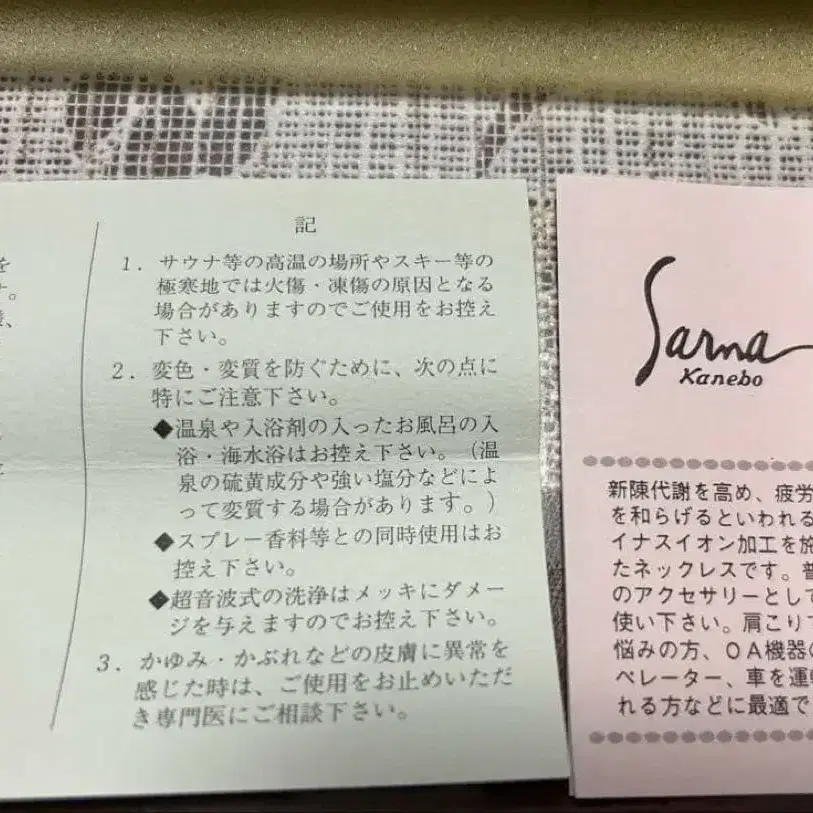 を
す。
記
1. サウナ等の高温の場所やスキー等の
極寒地では火傷・凍傷の原因となる
場合がありますのでご使用をお控え
下さい。
2. 変色・変質を防ぐために、次の点に
特にご注意下さい。
◆温泉や入浴剤の入ったお風呂の入
浴・海水浴はお控え下さい。（温
泉の硫黄成分や強い塩分などによ
って変質する場合があります。）
◆スプレー香料等との同時使用はお
控え下さい。
◆超音波式の洗浄はメッキにダメー
ジを与えますのでお控え下さい。
3. かゆみ・かぶれなどの皮膚に異常を
感じた時は、ご使用をお止めいただ
き専門医にご相談下さい。
Sarna
Kanebo
新陳代謝を高め、疲労
を和らげるといわれる
イナスイオン加工を施
たネックレスです。普
のアクセサリーとして
使い下さい。肩こりで
悩みの方、OA機器の
ペレーター、車を運転
れる方などに最適で